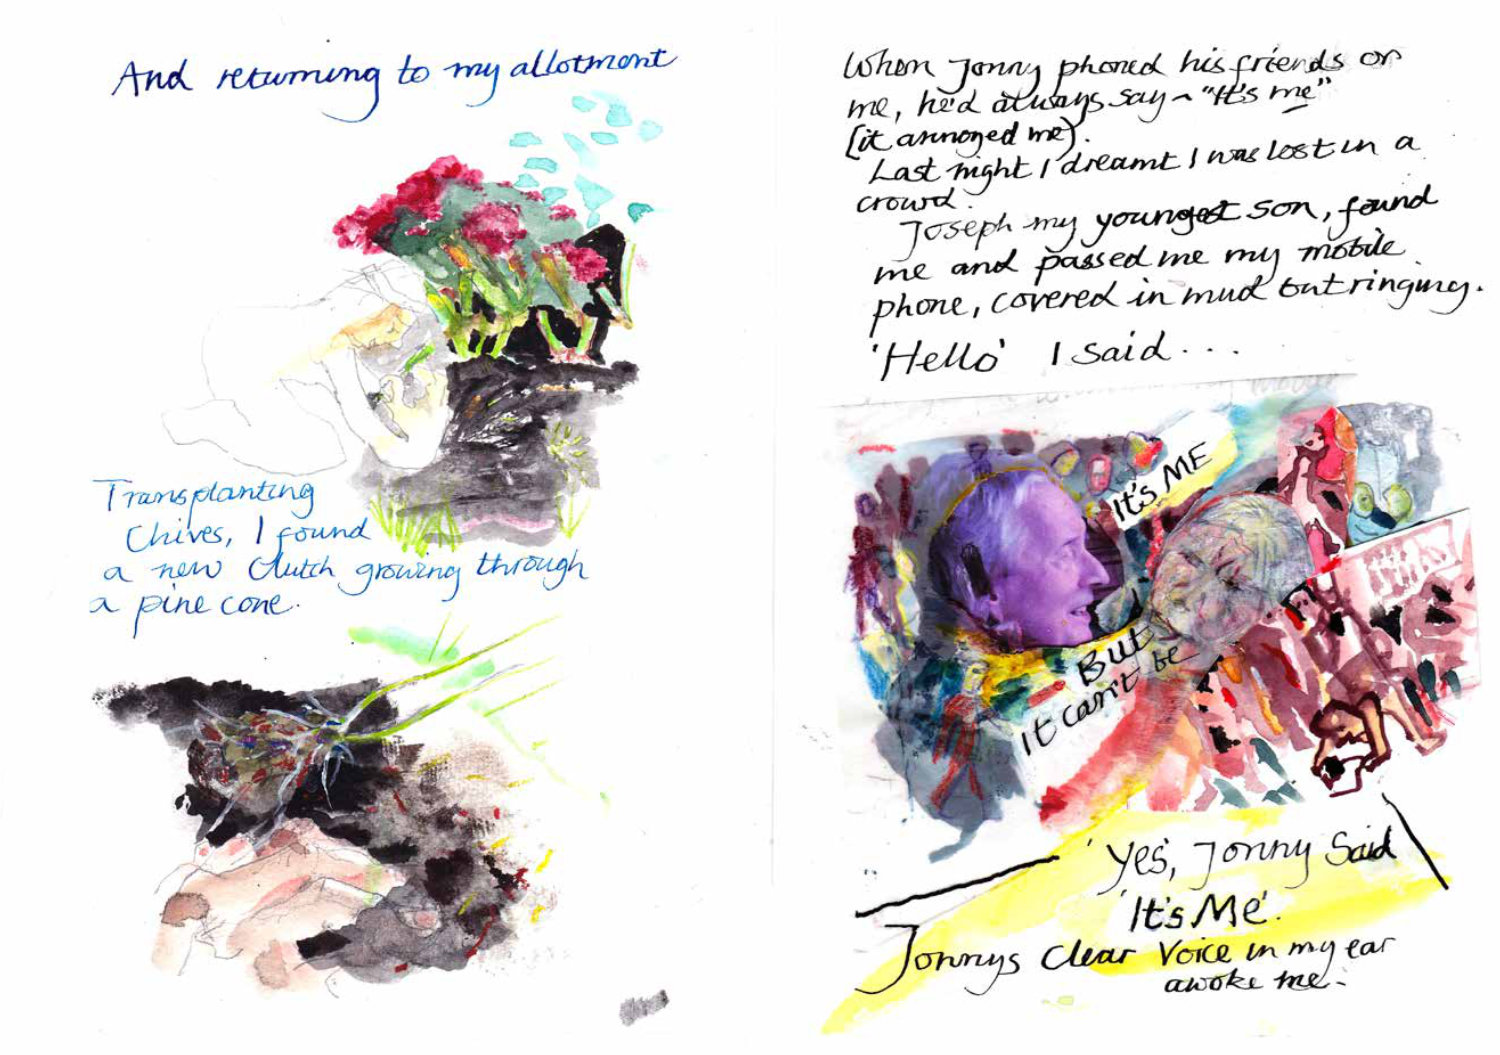 And returning to my allotment
Transplanting
Chives, I found
a new clutch growing through
a pine cone.
When Jonny phoned his friends or
me, he'd always say ~ "It's me"
(it annoyed me).
Last night I dreamt I was lost in a
crowd.
Joseph my youngest son, found
me and passed me my mobile
phone, covered in mud but ringing.
'Hello' I said...
It's ME
But
it can't be
'Yes', Jonny Said
'It's Me'.
Jonnys clear voice in my ear
awoke me.